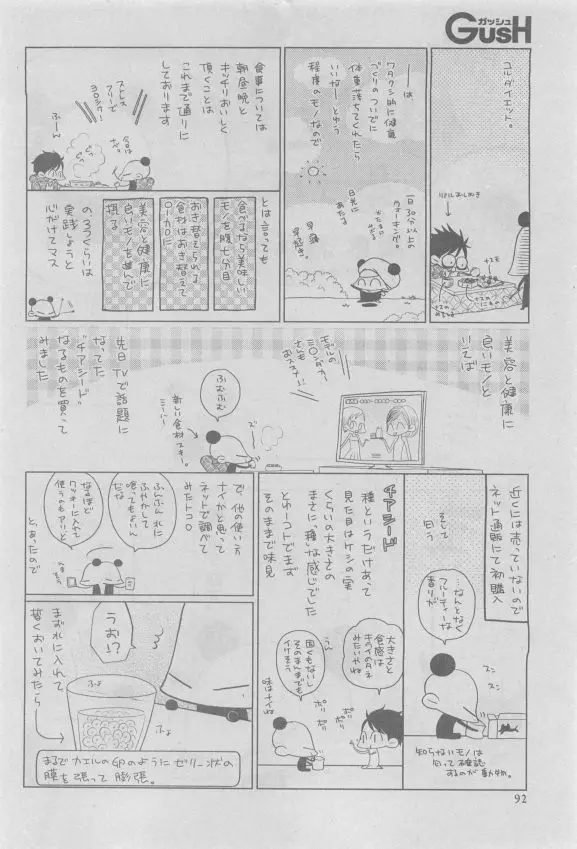 ガッシュ
GUSH
ユルダイエット。
リアルおしぬき
ナスモ
ナスの
ナスの
みそしる
―は
ワタクシ的に健康
づくりのついでに
体重落ちてくれたら
いいな―しゅう
程度のモノなので
一日30分以上の
ウォーキング。
日光に
あたる
早寝
早起き。
食事については
朝昼晩と
キッツリおいしく
頂くことは
これまで通りに
しております
ストレス
フリーで
ヨロシク!
ふーん
今日は
とは言っても
食べるなら美味しい
モノを腹七分目
おき替えられる
食材はおき替えて
〇ーカロに
美容と健康に
良いモノを進んで
摂る
の3つくらいは
実践しようと
心がけてマス
美容と健康に
良いモノと
いえば
モデルの
ミ〇ンダカー
さんも
おススメ!!
ふむふむ
ズ
新しい食材スキー。
ミーハー
先日TVで話題に
なってた
"チアシード"
なるものを買って
みました
近くには売っていないので
ネット通販にて初購入
そして
匂う
…なんとなく
フルーティーな
香りが
スン
スン
知らないモノは
匂って確認
するのが動物。
チアシード
種というだけあって
見た目はケシの実
くらいの大きさの
まさに"種"な感じでした
とゆーコトでまず
そのままで味見
大きさと
食感は
キウイのタネ
みたいやね
うん
固くもないし
そのまんまでも
イケそう
ポリ
ポリ
ポリ
ポリ
味はナイね
で、他の使い方
ナイかと思って
ネットで調べて
みたトコロ
ふんふん水に
ふやかして
喰ってもよいん
だな
なるほど
クッキーに入れて
使うのもアリと
とあったので
まず水に入れて
暫くおいてみたら
うお!?
ふよ
ふよ
まるでカエルの卵のようにゼリー状の
膜を張って膨張。
92